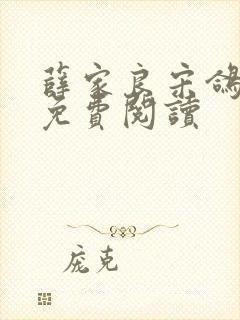 薛家良宋鴿
免費閱讀
庞克